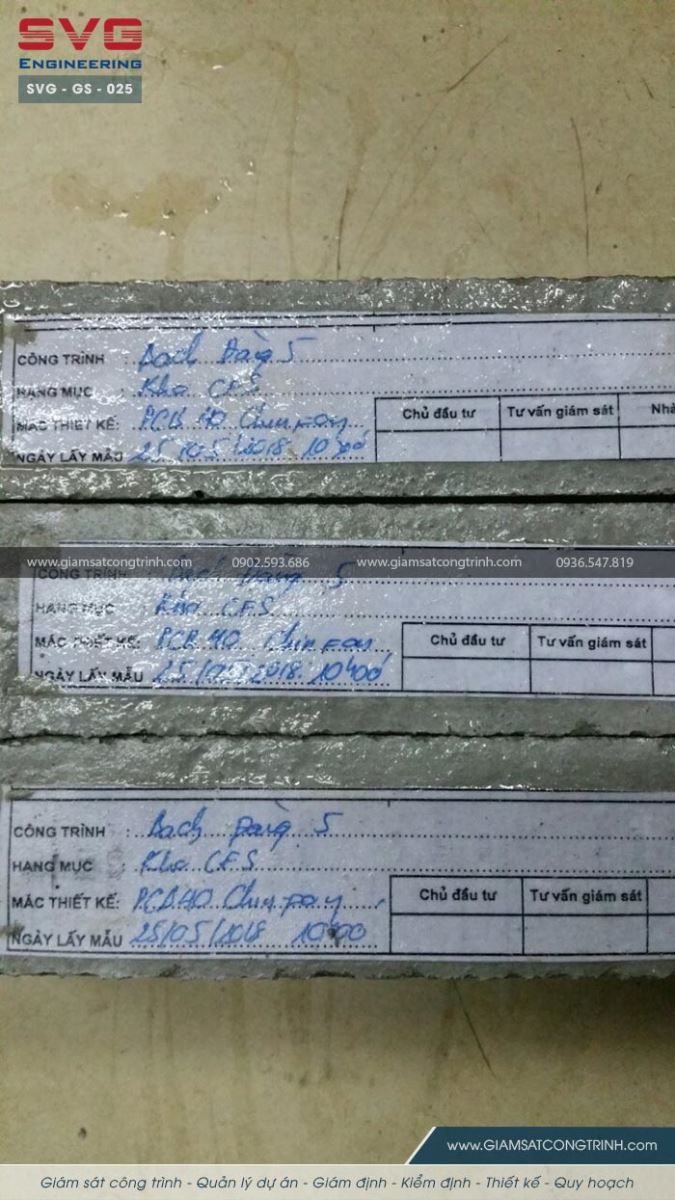 SVG
ENGINEERING
SVG - GS - 025
CÔNG TRÌNH : Bạch Đằng 5
HẠNG MỤC : Kho C.F.S
MÁC THIẾT KẾ: PCB 40 Chinfon
Chủ đầu tư Tư vấn giám sát Nhà
NGÀY LẤY MẪU 25/05/2018 10h00
www.giamsatcongtrinh.com 0902.593.686 www.giamsatcongtrinh.com 0936.547.819
CÔNG TRÌNH : Bạch Đằng 5
HẠNG MỤC : Kho C.F.S
MÁC THIẾT KẾ: PCB 40 Chinfon
Chủ đầu tư Tư vấn giám sát
NGÀY LẤY MẪU 25/05/2018 10h00
CÔNG TRÌNH : Bạch Đằng 5
HẠNG MỤC : Kho C.F.S
MÁC THIẾT KẾ: PCB40 Chinfon
Chủ đầu tư Tư vấn giám sát
NGÀY LẤY MẪU 25/05/2018 10h00
www.GIAMSATCONGTRINH.com
Giám sát công trình - Quản lý dự án - Giám định - Kiểm định - Thiết kế - Quy hoạch